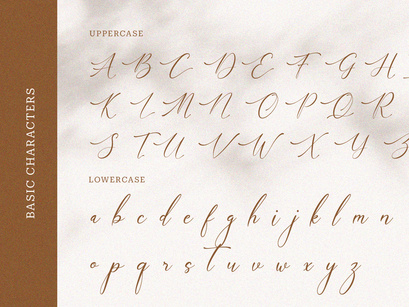 BASIC CHARACTERS
UPPERCASE
A B C D E F G H
K L M N O P Q R
S T U V W X Y Z
LOWERCASE
a b c d e f g h i j k l m n
o p q r s t u v w x y z